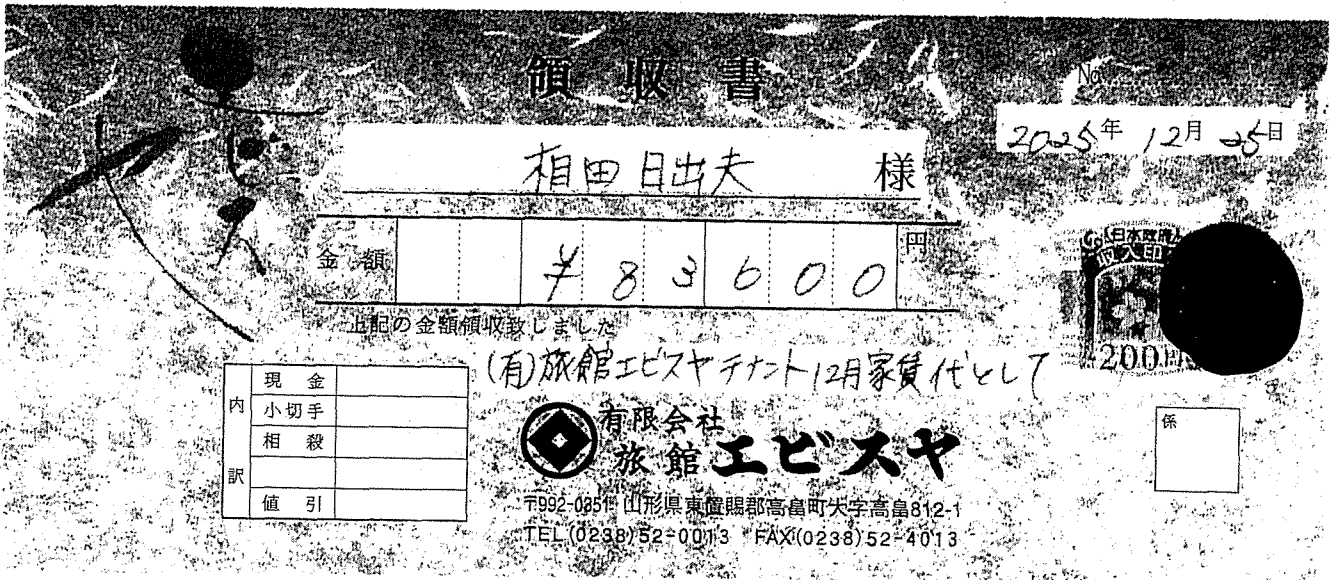 領収書
No.
2025年 12月 25日
相田日出夫 様
金額 ¥83600円
上記の金額領収致しました
(有)旅館エビスヤテナント12月家賃代として
日本政府
収入印
200円
内訳
現金
小切手
相殺
値引
有限会社
旅館 エビスヤ
〒992-0351 山形県東置賜郡高畠町大字高畠812-1
TEL(0238)52-0013 FAX(0238)52-4013
係